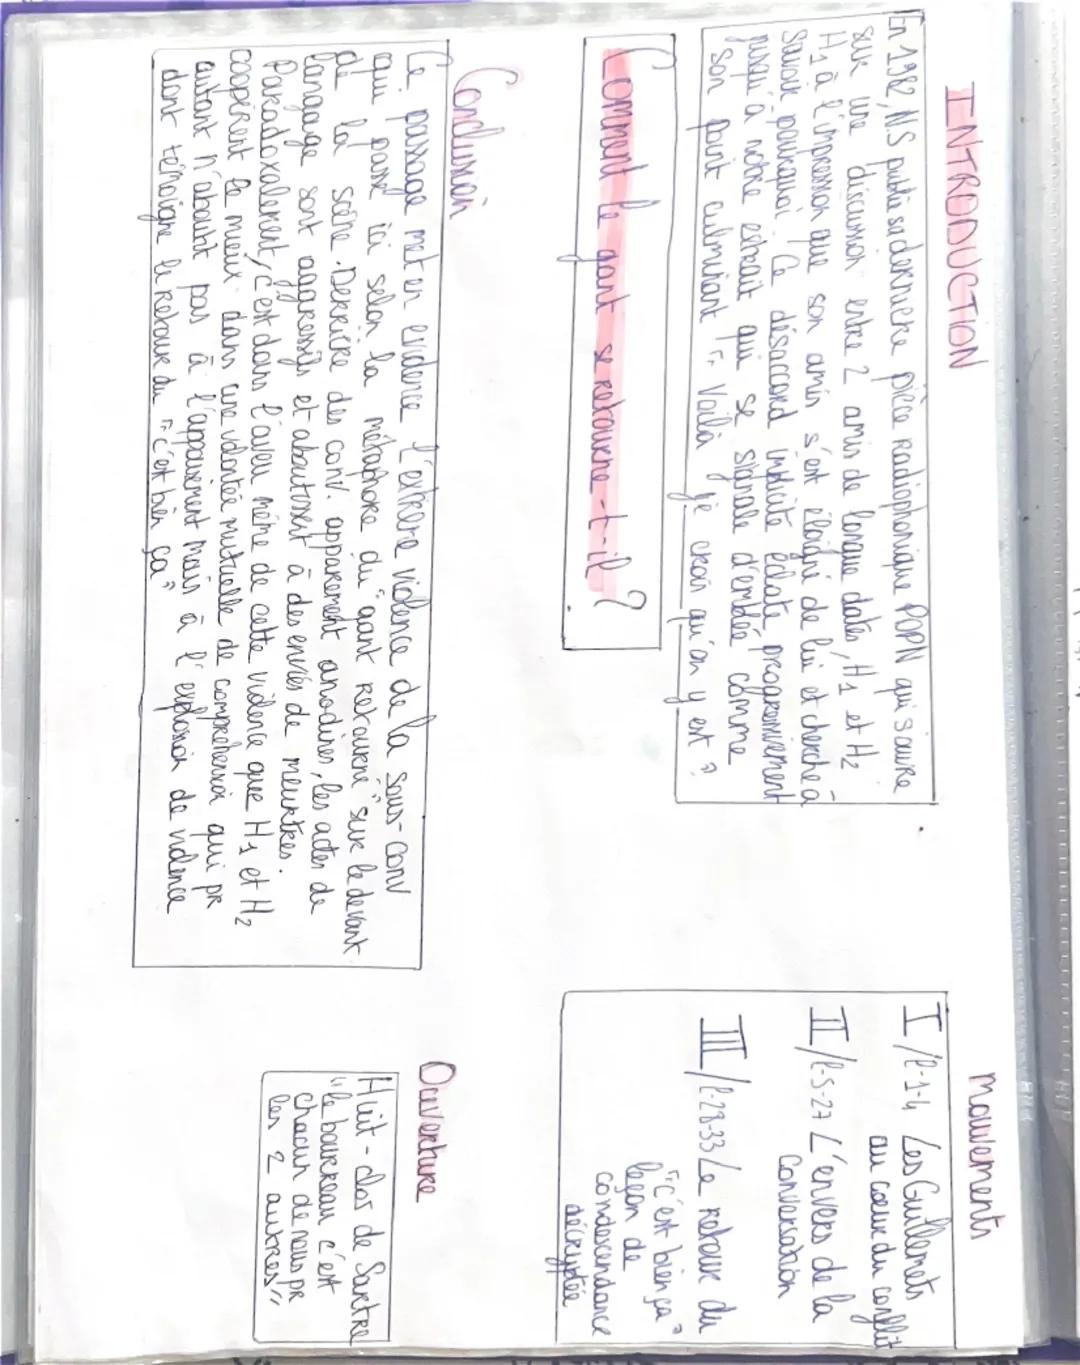 INTRODUCTION
En 1982, N.S publie sa dernière pièce radiophonique POPN qui s'ouvre
sur une discussion entre 2 amis de longue dates, H1 et H2
H1 à l'impression que son amis s'est éloigné de lui et cherche à
savoir pourquoi. Ce désaccord implicite éclate progressivement
jusqu'à notre extrait qui se signale d'emblée comme
son point culminant "Voilà je crois qu'on y est"
Comment le gant se retourne-t-il ?
Conclusion
Ce passage met en evidence l'extrême violence de la sous-conv
qui passe ici selon la métaphore du "gant retourné" sur le devant
de la scène. Derrière des conv. apparement anodines, les actes de
langage sont aggressifs et aboutissent à des envies de meurtres.
Paradoxalement, c'est dans l'aveu même de cette violence que H1 et H2
coopèrent le mieux dans une volontée mutuelle de comprehension qui pr
autant n'aboutit pas à l'appaisement mais à l'explosion de violence
dont témoigne le retour du "c'est bien ça"
mouvements
I/l-1-4 Les Guillemets
au coeur du conflit
II/l-5-27 L'envers de la
conversation
III/l-28-33 Le retour du
"c'est bien ça"
leçon de
condescendance
décryptée
Ouverture
Huit-clos de Sartre
"le bourreau c'est
chacun de nous pr
les 2 autres"